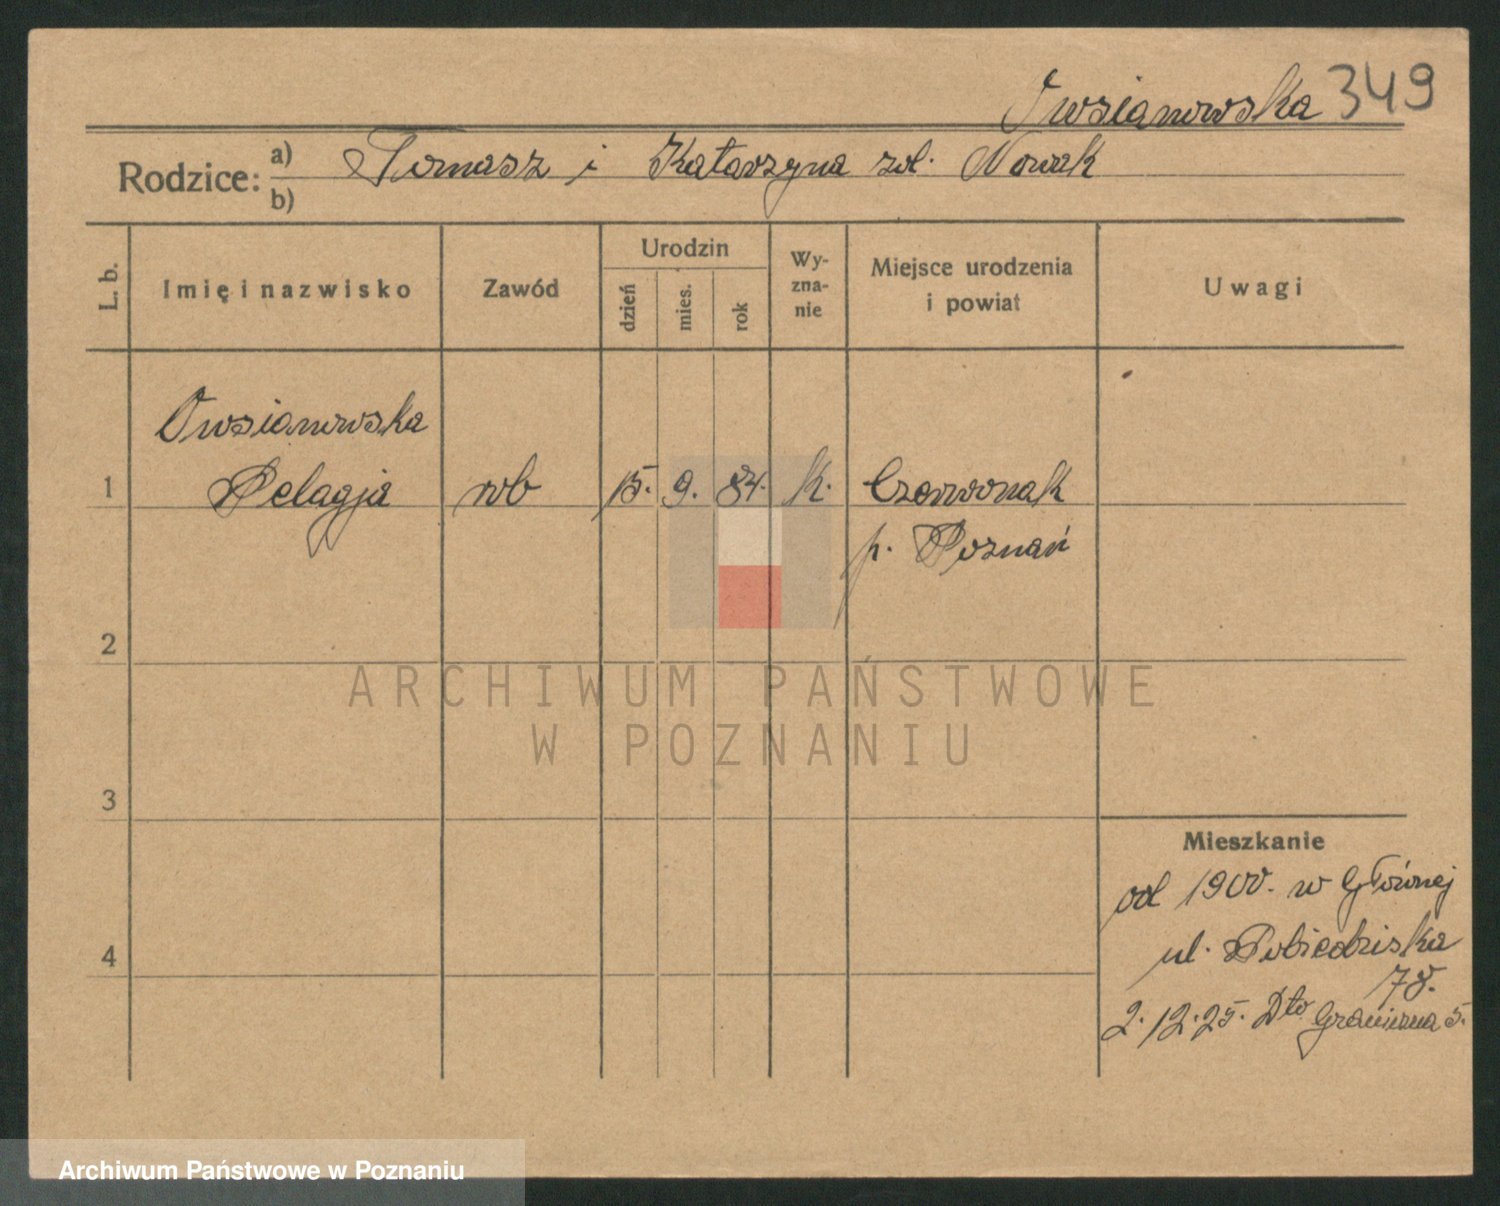 Owsianowska 349
Rodzice: a) Tomasz i Katarzyna zd. Nowak
b)
L. b.
Imię i nazwisko
Zawód
Urodzin
dzień
mies.
rok
Wy-
zna-
nie
Miejsce urodzenia
i powiat
Uwagi
Owsianowska
1 Pelagja rob 15. 9. 84. k. Czerwonak
p. Poznań
2
ARCHIWUM PAŃSTWOWE
W POZNANIU
3
Mieszkanie
od 1900. w Głównej
ul. Pobiedziska
78.
4
2.12.25. Dto Graniczna 5.
Archiwum Państwowe w Poznaniu